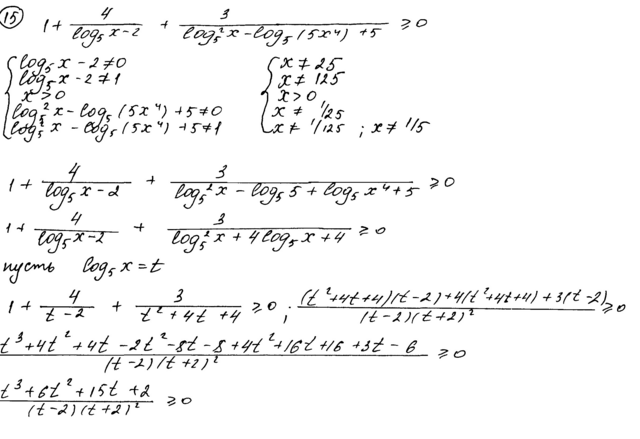 (15) 1 + 4/(log₅x-2) + 3/(log₅²x - log₅(5x⁴) + 5) ≥ 0
{ log₅x - 2 ≠ 0
log₅x - 2 ≠ 1
x > 0
log₅²x - log₅(5x⁴) + 5 ≠ 0
log₅²x - log₅(5x⁴) + 5 ≠ 1
{ x ≠ 25
x ≠ 125
x > 0
x ≠ 1/25
x ≠ 1/125 ; x ≠ 1/5
1 + 4/(log₅x - 2) + 3/(log₅²x - log₅5 + log₅x⁴ + 5) ≥ 0
1 + 4/(log₅x-2) + 3/(log₅²x + 4log₅x + 4) ≥ 0
пусть log₅x = t
1 + 4/(t-2) + 3/(t² + 4t + 4) ≥ 0 ; ((t²+4t+4)(t-2)+4(t²+4t+4)+3(t-2))/((t-2)(t+2)²) ≥ 0
(t³+4t²+4t-2t²-8t-8+4t²+16t+16+3t-6)/((t-2)(t+2)²) ≥ 0
(t³+6t²+15t+2)/((t-2)(t+2)²) ≥ 0